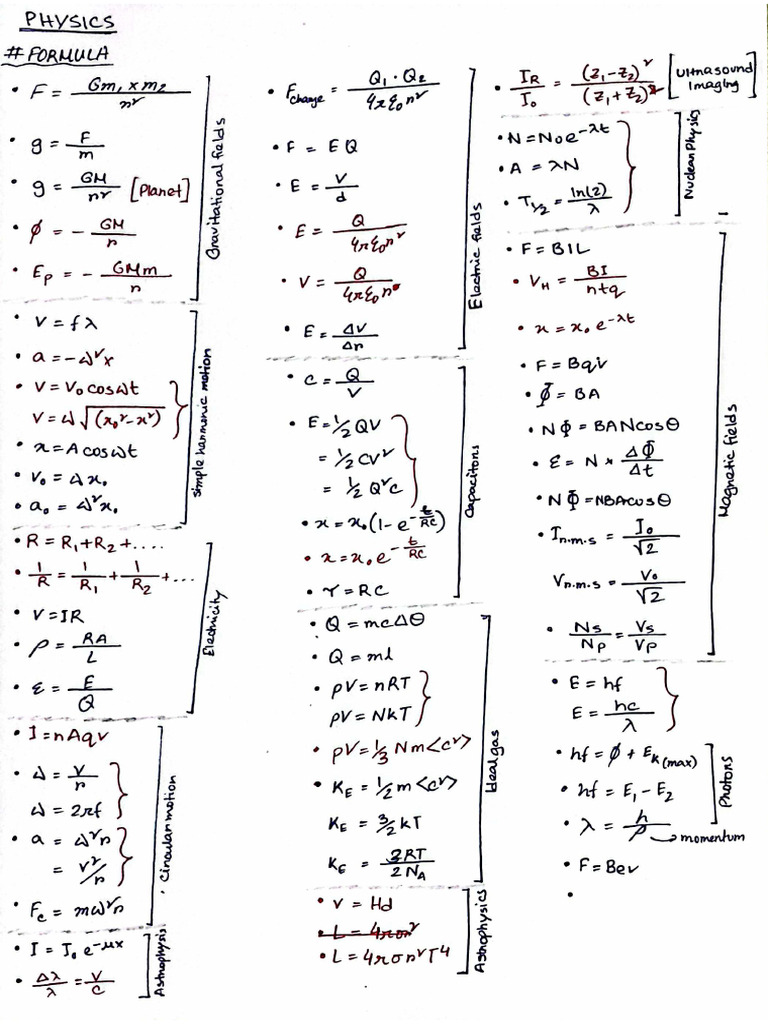 PHYSICS
# FORMULA
• F = Gm₁ × m₂ / r²
• g = F / m
• g = GM / r² [Planet]
• ϕ = − GM / r
• Eₚ = − GMm / r
Gravitational fields
• V = fλ
• a = −ω²x
• V = V₀ cosωt
V = ω √(x₀² − x²)
• x = A cosωt
• V₀ = ωx₀
• a₀ = ω²x₀
simple harmonic motion
• R = R₁ + R₂ + ....
• 1/R = 1/R₁ + 1/R₂ + ...
• V = IR
• ρ = RA / L
• ε = E / Q
Electricity
• I = nAqv
• ω = V / r
ω = 2πf
• a = ω²r
= v²/r
• F_c = mω²r
Circular motion
• I = I₀ e^(−μx)
• Δλ / λ = V / C
Astrophysis
• F_charge = Q₁ · Q₂ / 4πε₀r²
• F = EQ
• E = V / d
• E = Q / 4πε₀r²
• V = Q / 4πε₀r
• E = ΔV / Δr
Electric fields
• C = Q / V
• E = ½ QV
= ½ CV²
= ½ Q²C
• x = x₀ (1 − e^(−t/RC))
• x = x₀ e^(−t/RC)
• τ = RC
Capacitors
• Q = mcΔθ
• Q = ml
• pV = nRT
pV = NkT
• pV = ⅓ Nm<c²>
• K_E = ½ m<c²>
K_E = 3/2 kT
K_E = 3RT / 2N_A
Ideal gas
• V = Hd
• L = 4πσr²
• L = 4πσr²T⁴
Astrophysics
• I_R / I₀ = (Z₁ − Z₂)² / (Z₁ + Z₂)² [Ultrasound Imaging]
• N = N₀e^(−λt)
• A = λN
• T½ = ln(2) / λ
Nuclear Physics
• F = BIL
• V_H = BI / ntq
• x = x₀ e^(−λt)
• F = Bqv
• Φ = BA
NΦ = BANcosθ
• ε = N × ΔΦ / Δt
• NΦ = NBAcosθ
• I_r.m.s = I₀ / √2
V_r.m.s = V₀ / √2
• Ns / Np = Vs / Vp
Magnetic fields
• E = hf
E = hc / λ
• hf = ϕ + E_k(max)
• hf = E₁ − E₂
• λ = h / p → momentum
Photons
• F = Bev
•